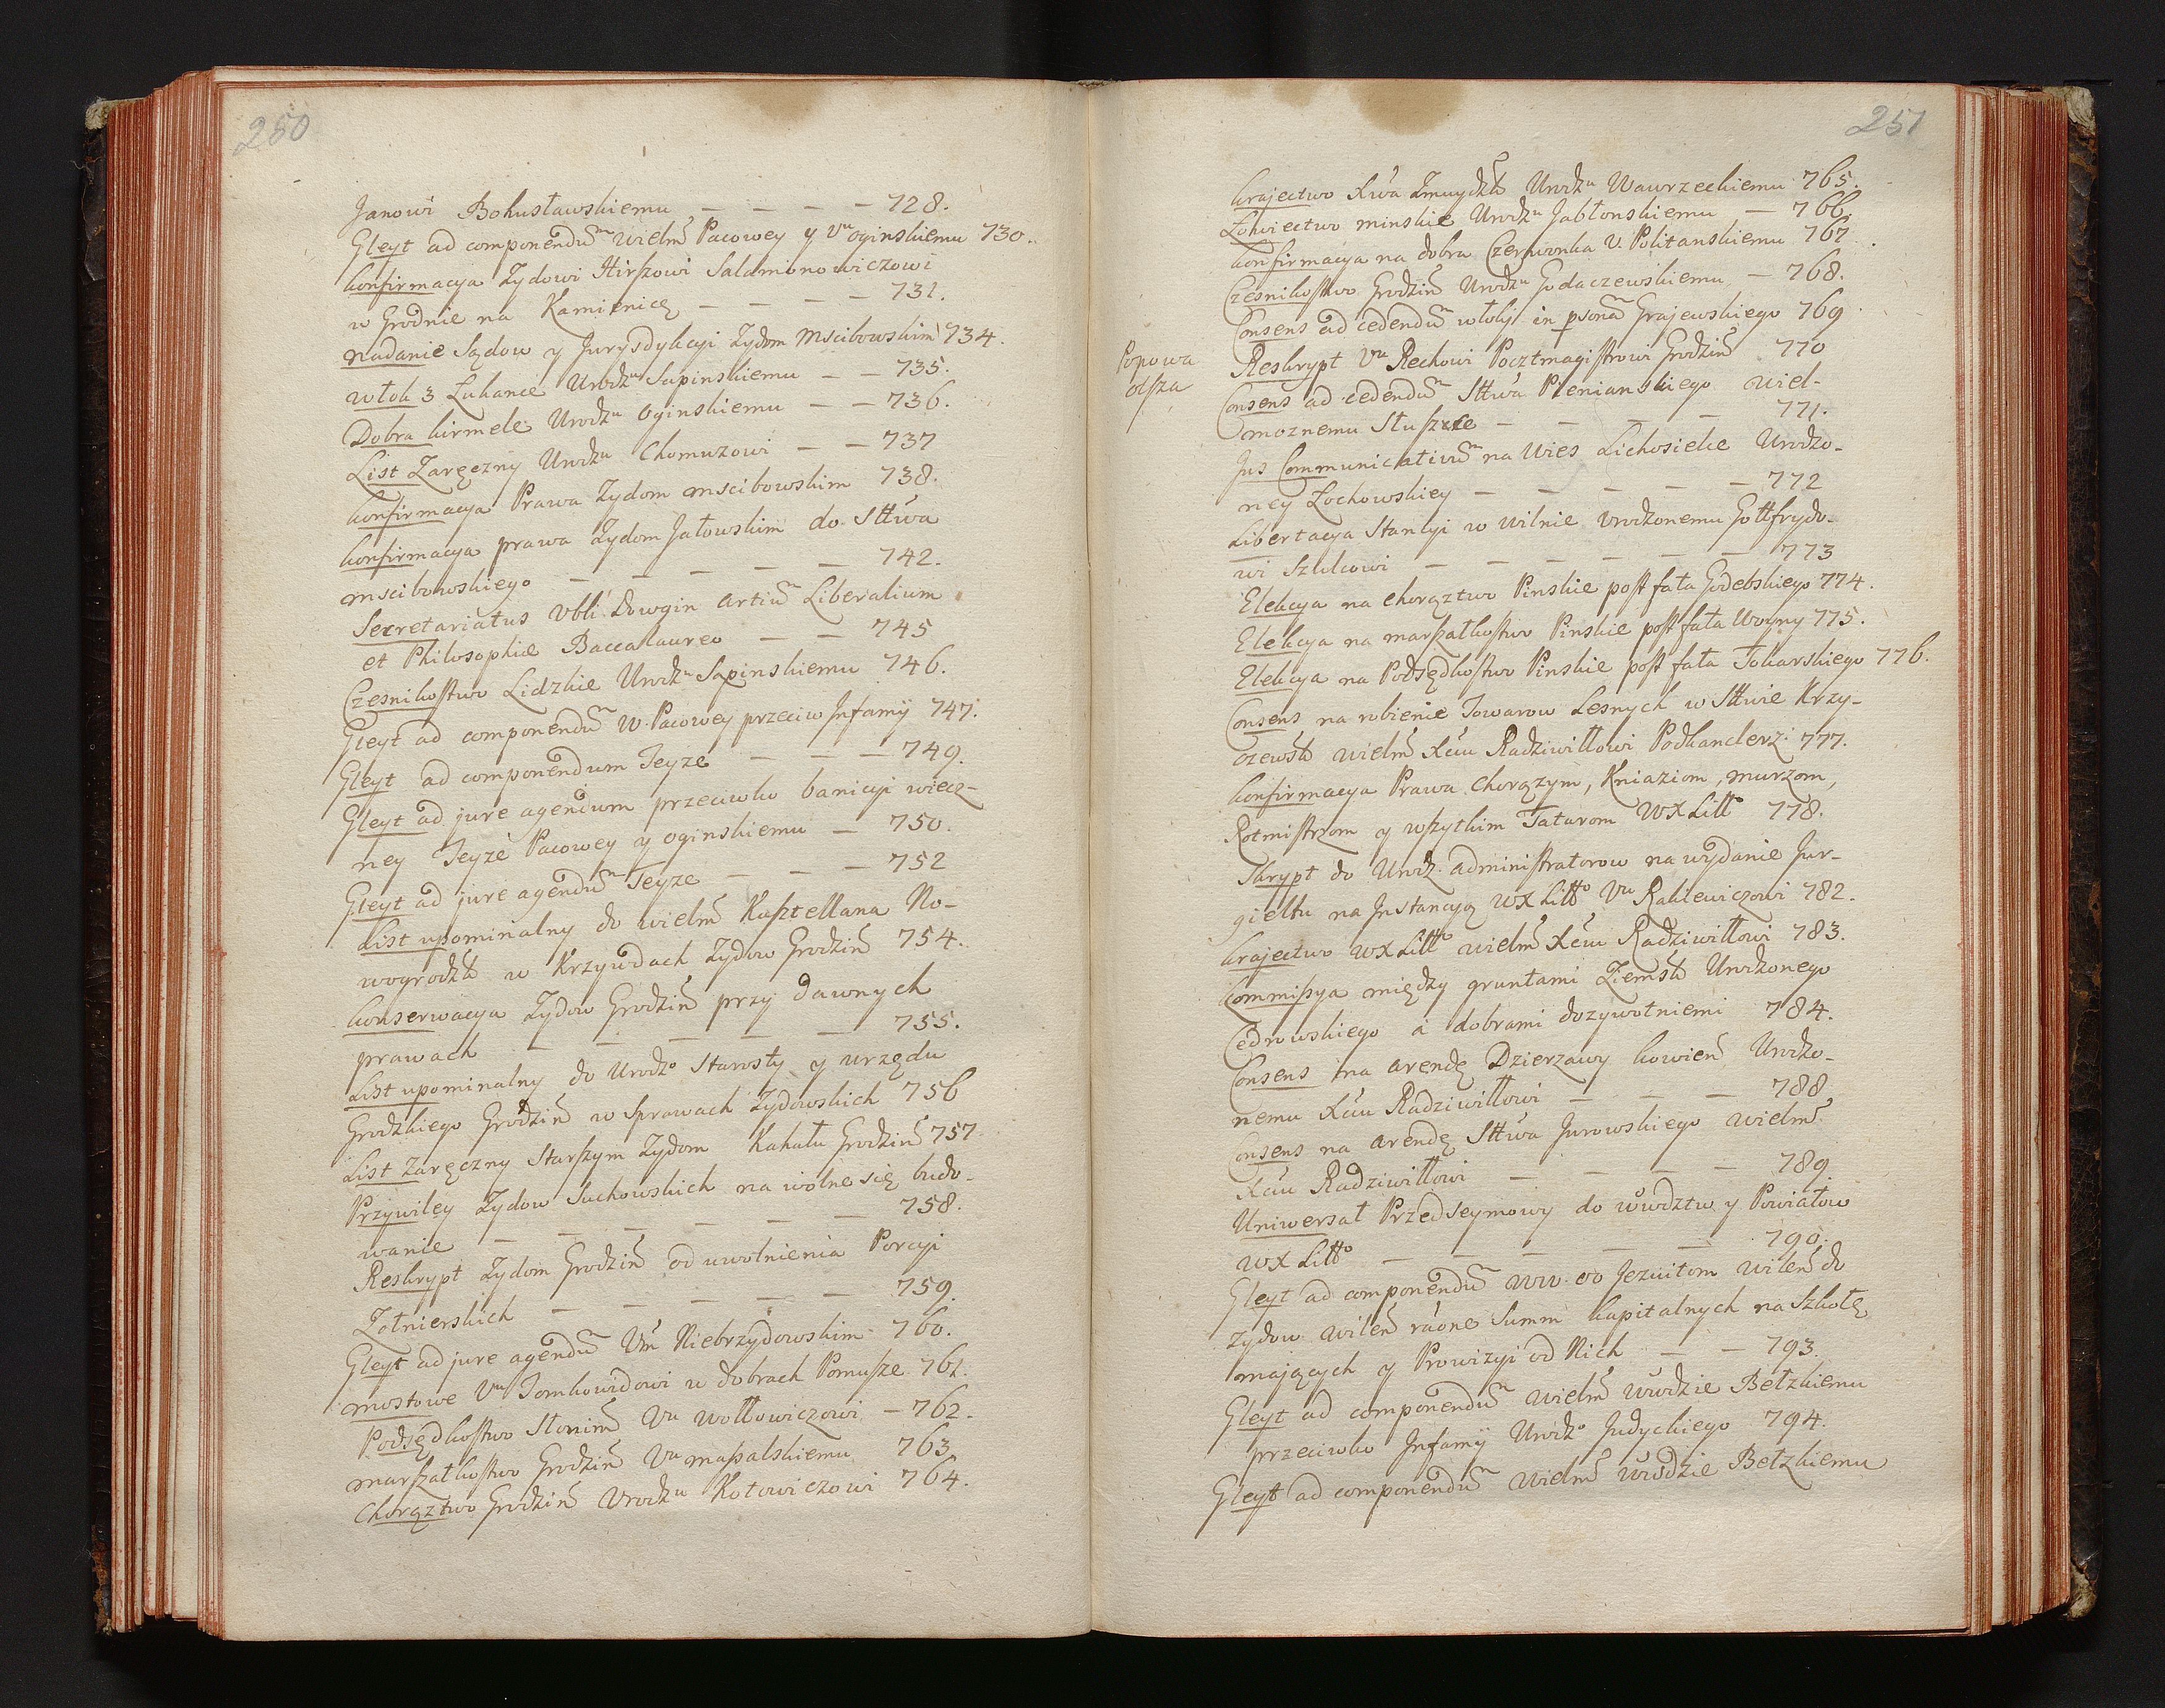 250
Janowi Bohusławskiemu — — — — 728.
Gleyt ad componendum wielm Pacowey y Vu Oginskiemu 730.
konfirmacya Zydowi Hirszowi Salamonowiczowi
w Grodnie na Kamienicę — — — — 731.
nadanie Sądow y Jurysdykcyi Zydom Mscibowskim 734.
włok 3 Lukance Urodzu Sapinskiemu — — 735.
Dobra kirmele Urodzu Oginskiemu — — 736.
List Zaręczny Urodzu Chomuzowi — — 737
konfirmacya Prawa Zydom mscibowskim 738.
konfirmacya prawa Zydom Jałowskim do Sttwa
mscibowskiego — — — — — 742.
Secretariatus Vbli Dowgin artium Liberalium
et Philosophie Baccalaureo — — 745
Czesnikostwo Lidzkie Urodzu Sapinskiemu 746.
Gleyt ad componendum W. Pacowey przeciw Jnfamij 747.
Gleyt ad componendum Teyze — — — 749.
Gleyt ad jure agendum przeciwko banicyi wiecz-
ney Teyze Pacowey y Oginskiemu — 750.
Gleyt ad jure agendum Teyze — — — 752
List upominalny do wielm Kasztellana No-
wogrodzk w Krzywdach Zydow Grodzin 754.
konserwacya Zydow Grodzin przy dawnych
prawach — — — — — 755.
List upominalny do Urodzo Starosty y urzędu
Grodzkiego Grodzin w Sprawach Zydowskich 756
List Zaręczny Starszym Zydom Kahału Grodzin 757
Przywiley Zydow Suchowskich na wolne się budo-
wanie — — — — — — 758.
Reskrypt Zydom Grodzin od uwolnienia Porcyi
Zołnierskich — — — — — 759.
Gleyt ad jure agendum Vm Niebrzydowskim 760.
mostowe Vu Tomkowidowi w dobrach Pomusze 761.
Podsędkostwo Słonim Vu Wołłowiczowi — 762.
marszałkostwo Grodzin Vu masalskiemu 763
Chorąztwo Grodzin Vrodzu Kotowiczowi 764.
251
krajectwo Xwa Zmuydzk Urodzu Wawrzeckiemu 765.
Łowiectwo minskie Urodzu Jabłonskiemu — 766.
konfirmacya na dobra Czerwonka V. Politanskiemu 767.
Czesnikostwo Grodzin Urodzu Godaczewskiemu — 768.
Consens ad cedendum włok in psonam Grajewskiego 769
Popowa
olsza
Reskrypt Vu Rechowi Pocztmagistrowi Grodzin 770
Consens ad cedendum Sttwa Pienianskiego wiel-
moznemu Słuszce — — — — 771.
Jus Communicativum na Wies Lichosielce Urodzo-
ney Zochowskiey — — — — — 772
Libertacya Stancyi w wilnie Vrodzonemu Gottfrydo-
wi Szulcowi — — — — — 773
Elekcya na chorąztwo Pinskie post fata Godebskiego 774.
Elekcya na marszałkostwo Pinskie post fata Woyny 775.
Elekcya na Podsędkostwo Pinskie post fata Tokarskiego 776.
Consens na robienie Towarow Lesnych w Sttwie Krzy-
czewsk wielm Xciu Radziwiłłowi Podkanclerz: 777.
konfirmacya Prawa Chorązym, Kniaziom, murzom,
Rotmistrzom y wszytkim Tatarom WX Litt 778.
Skrypt do Urodz. administratorow na wydanie Jur-
gieltu na Jnstancyą WX Litto Vu Raklewiczowi 782.
krajectwo WX Litto wielm Xciu Radziwiłłowi 783.
kommissya między gruntami Ziemsk Urodzonego
Cedrowskiego a dobrami dozywotniemi 784.
Consens na arendę Dzierzawy kowien Urodzo-
nemu Xciu Radziwiłłowi — — — 788
Consens na arendę Sttwa Jurowskiego wielm
Xciu Radziwiłłowi — — — — 789
Uniwersał Przedseymowy do wwdztw y Powiatow
WX Litto — — — — — 790.
Gleyt ad componendum WW. oo Jezuitom wilen do
Zydow wilen raone Summ kapitalnych na Szkołę
mających y Prowizyi od Nich — — 793.
Gleyt ad componendum wielm wwdzie Bełzkiemu
przeciwko Jnfamij Urodzo Judyckiego 794.
Gleyt ad componendum wielm wwdzie Bełzkiemu